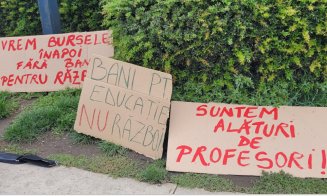 VREM BURSELE
ÎNAPOI
FĂRĂ BANI
PENTRU RĂZB
BANI PT
EDUCAȚIE
NU RĂZBOI
SUNTEM
ALĂTURI
DE
PROFESORI!